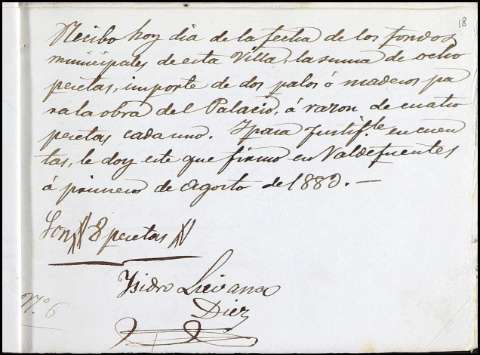 18
Recibo hoy dia de la fecha de los fondos
municipales de esta Villa, la suma de ocho
pesetas, importe de dos palos ó maderos pa
ra la obra del Palacio, á razon de cuatro
pesetas cada uno. Y para su cuen
tas, le doy este que firmo en Valdefuentes
á primero de Agosto de 1880. —
Son 8 pesetas
Isidro
Diez
Nº 6